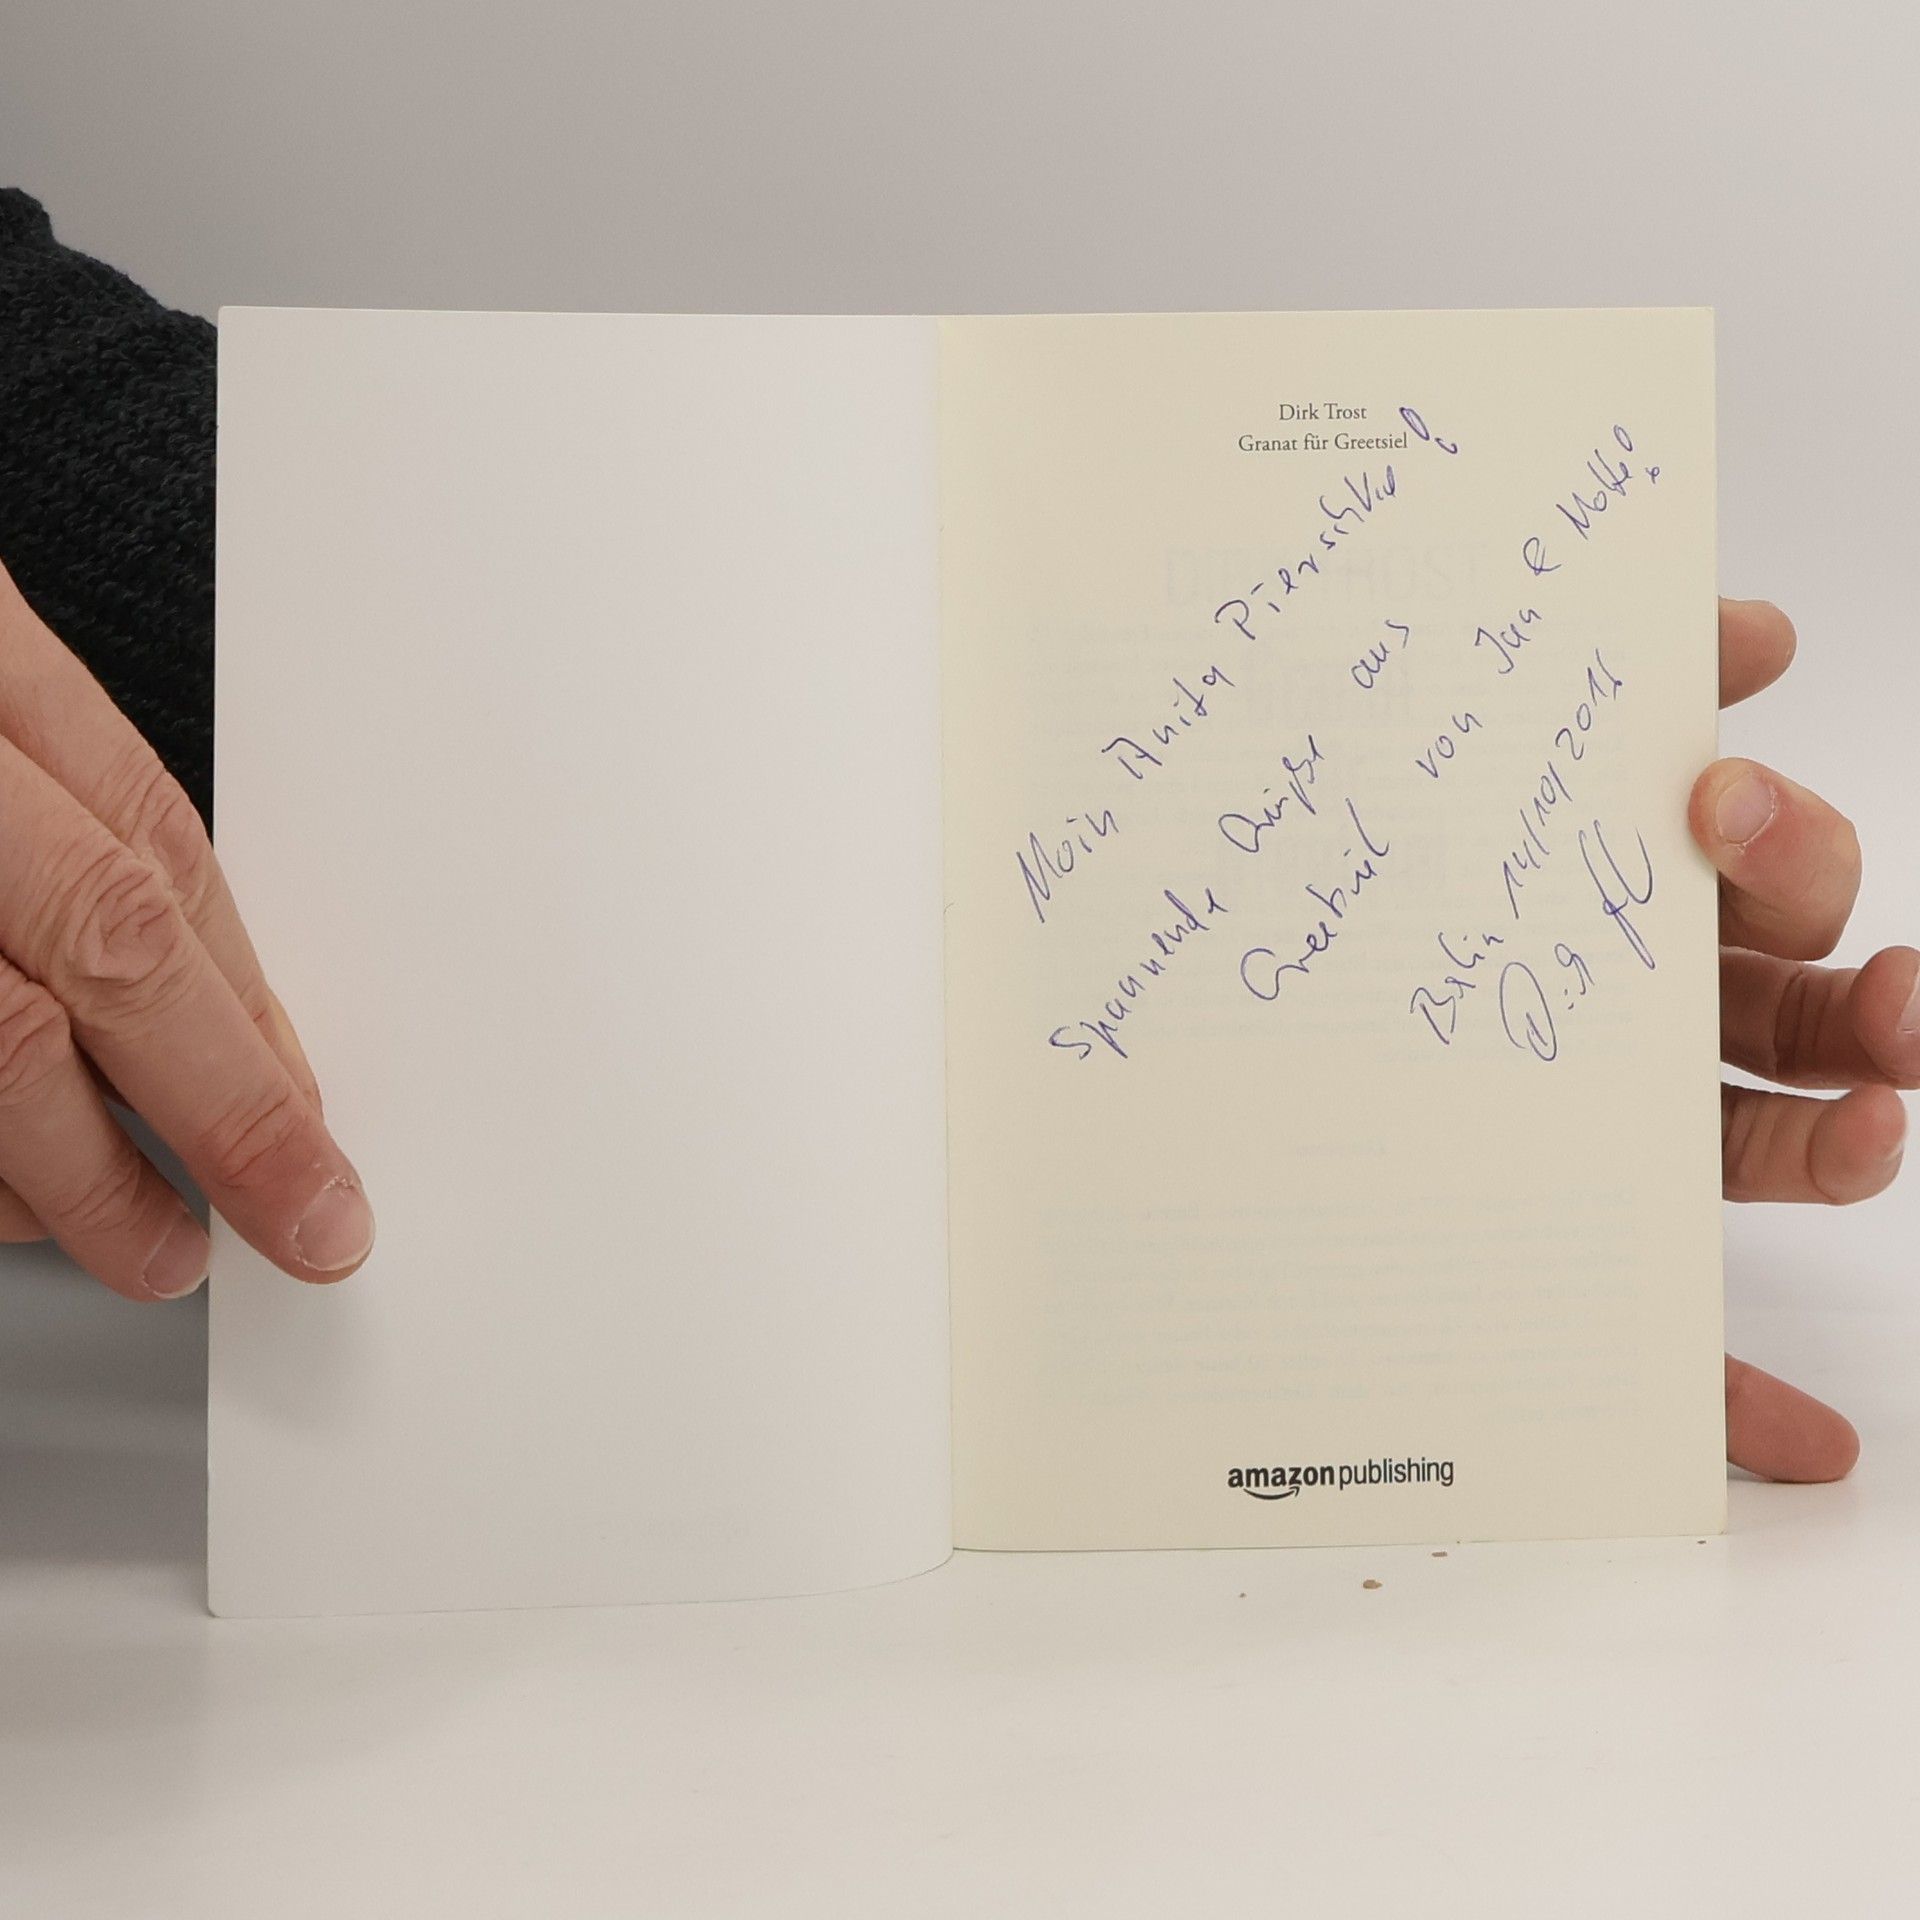 Dirk Trost
Granat für Greetsiel
Moin Anita
Spannende Grüße aus
Greetsiel von Jan & Motte!
Berlin 14/10/
Dirk
amazon publishing